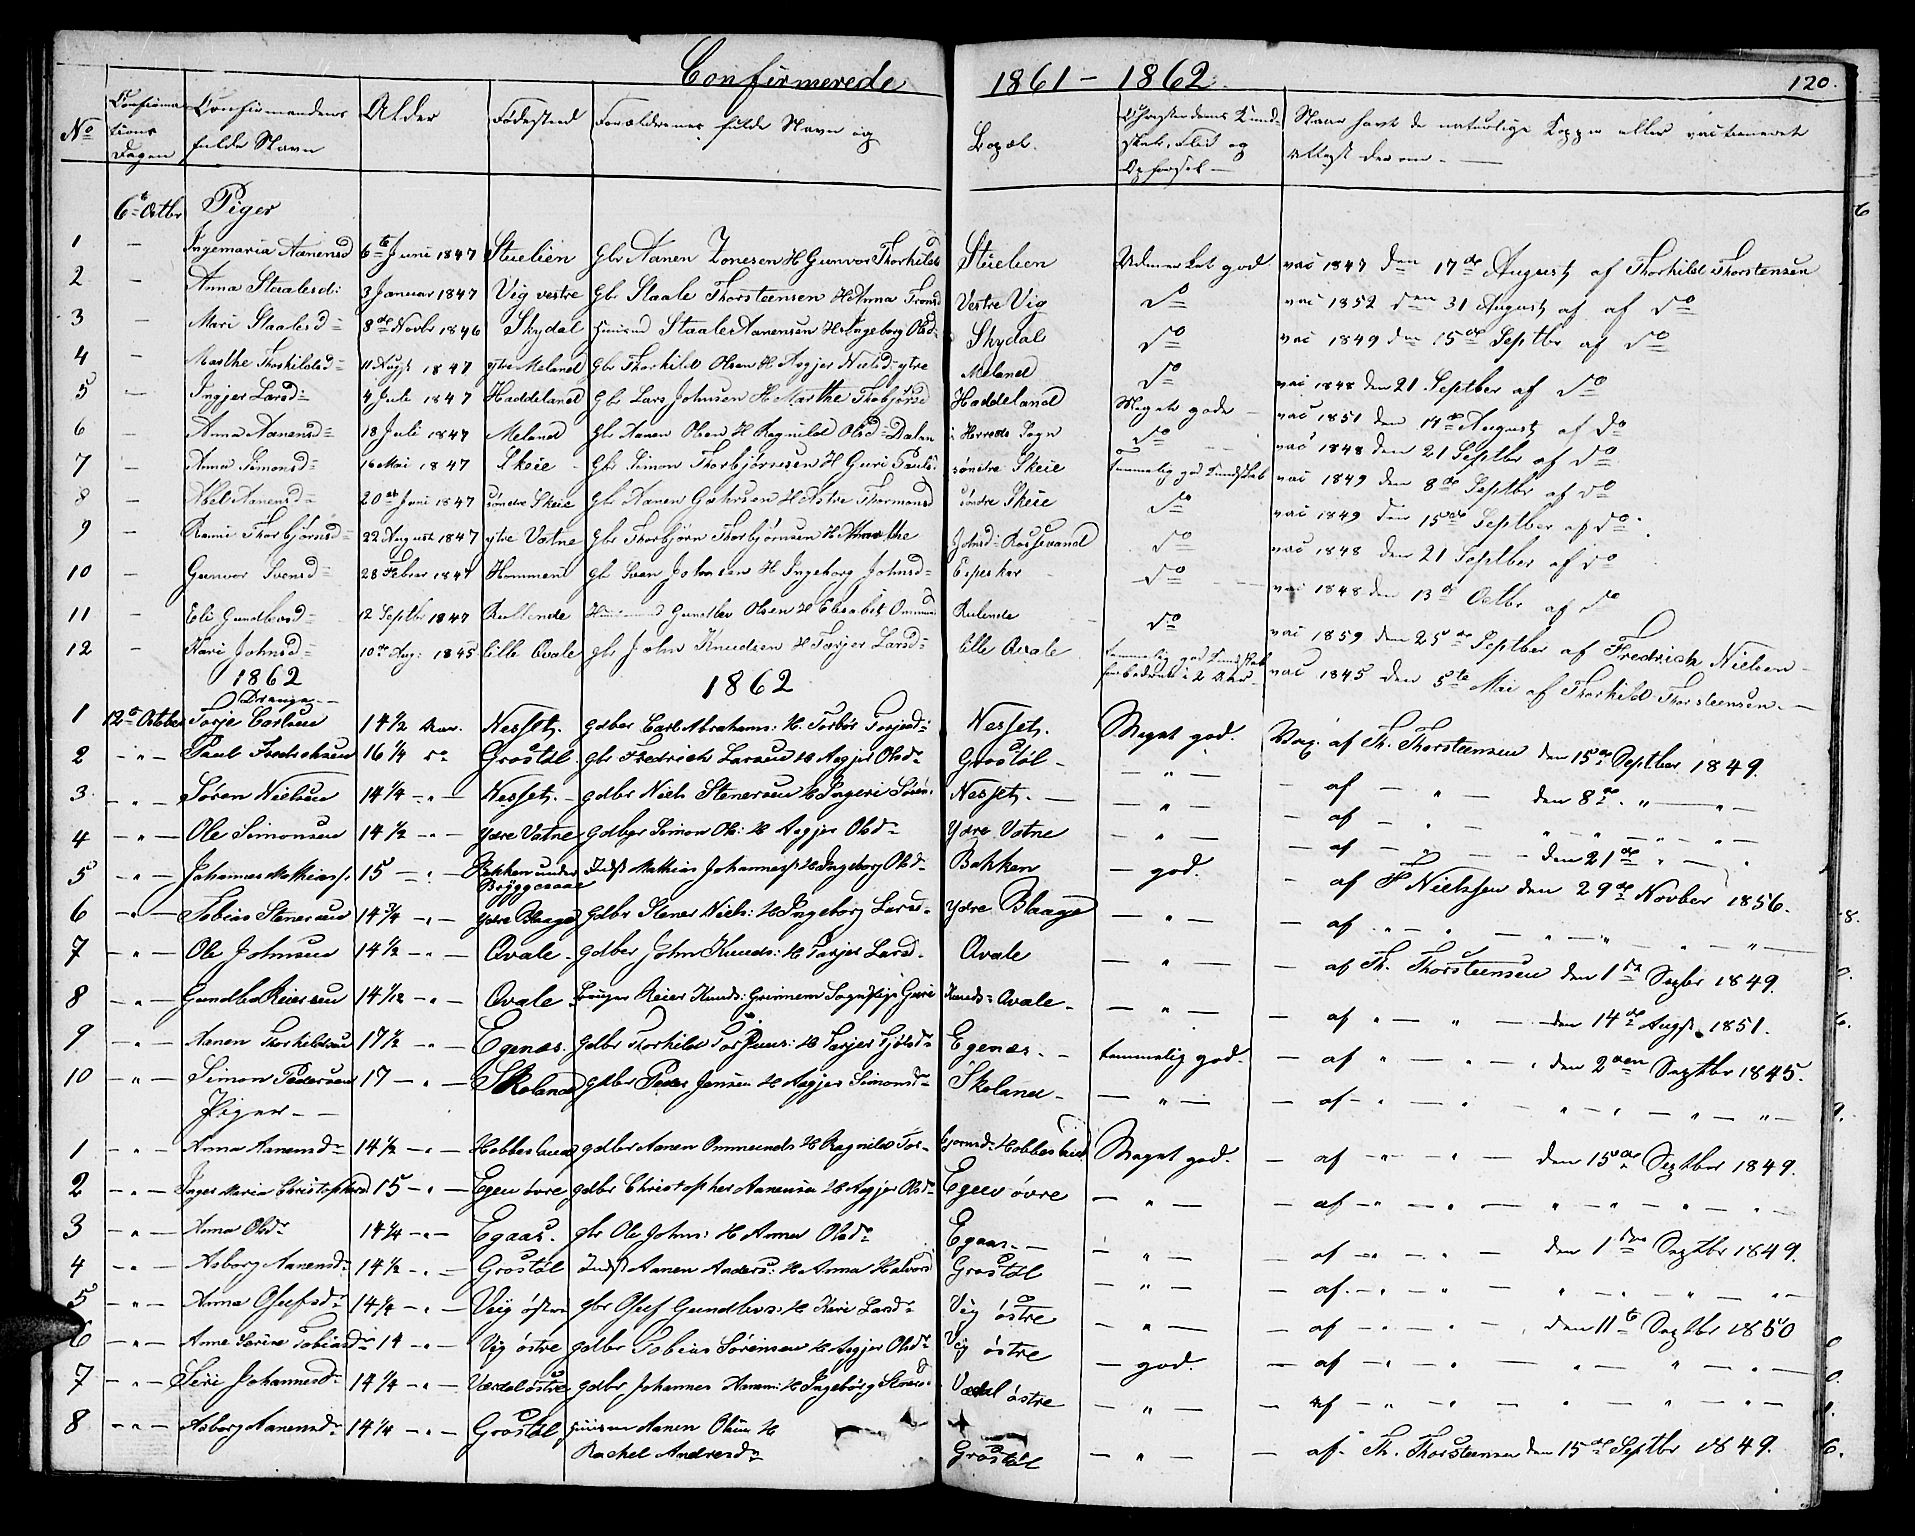 Confirmerede 1861 - 1862. 120.
No Confirma tions Dagen Confirmandens fulde Navn Alder Fødested Forældrenes fulde Navn og Bopæl. Christendoms Kundskab, Flid og Opførsel Naar havt de naturlige Kopper eller vaccineret Attest derom
6te Octbr Piger
1 - Ingemaria Aanensd 6te Juni 1847 Stuelien Gbr Aanen Zonesen H Gunvor Thorkilds Stuelien Udmerket god vac 1847 den 17de August af Thorkild Thorstensen
2 - Anna Staalesd: 3 Januar 1847 Vig vestre Gbr Staale Thorsteensen H Anna Tronsd Vestre Vig do vac 1852 den 31 August af af do
3 - Mari Staalesd 8de Novbr 1846 Skydal Staale Aanensen H Ingeborg Olsd Skydal do vac 1849 den 15de Septbr af do
4 - Marthe Thorkildsd 11 Augst 1847 ytre Meland Gbr Thorkild Olsen H Aagjer Nielsd ytre Meland do vac 1848 den 21 Septber af do
5 - Ingjer Larsd 4 Juli 1847 Haddeland Gbr Lars Johnsen H Marthe Thobjørsd Haddeland Meget gode vac 1851 den 14de August af do
6 - Anna Aanensd 18 Juli 1847 Meland Gbr Aanen Olsen H Ragnild Olsd Dalen i Herreds Sogn do vac 1848 den 21 Septber af do
7 - Anna Simonsd 16 Mai 1847 Skeie Gbr Simon Thorbjørnsen H Guri Pauls søndre Skeie Temmelig god Kundskab vac 1849 den 8de Septbr af do
8 - Abel Aanensd 20de Juni 1847 søndre Skeie gbr Aanen Thormonsd søndre Skeie do vac 1849 den 15de Septber af do.
9 - Thorbjørnsd 22 August 1847 ytre Vatne Gbr Thorbjørn Thorbjørnsen H Marthe Johnsd Rossevand do vac 1848 den 21 Septber af do
10 - Gunvor Svensd 28 Febrer 1847 Hommen gbr Sven Johnsen H Ingeborg Johnsd Eepesker do vac 1848 den 13de Octbr af do
11 - Eli Gundlevsd 12 Septbr 1847 Rullende Gundlev Olsen H Elisabet Ommund Rulende do vac 1859 den 25de Septber af Fredrich Nielsen
12 - Kari Johnsd 10de Aug: 1845 lille Qvale gbr John Knudsen H Tarjer Larsd lille Qvale temmelig god Kundskab forbedret i 2 Uker vac 1845 den 5te Mai af Thorkild Thorsteensen.
1862 1862
Drenge
1 12te October Torje Carlsen 14 1/2 Aar. Nesset. gdber Carl Abrahams: H. Torbør Torjusd Nesset. Meget god. Vac. af Th. Thorsteensen den 15de Septber 1849.
2 - " - Paul Fredrichsen 16 1/4 do Grostøl gbr Fredrich Larsen H Aagjer Olsd Grostøl - " - - af - " - den 8de " - " -
3 - " - Søren Nielsen 14 1/4 - " - Nesset. gdbr Niels Stenersen H Ingeri Søren: Nesset. - " - - af - " - " - " -
4 - " - Ole Simonsen 14 1/2 - " - Ydre Vatne gdber Simon Ols: H Aagjer Olsd Ydre Vatne - " - - af - " - den 21de " -
5 - " - Johannes Mathiass. 15 - " - Bekken under Bryggesaae Indst Mathias Johanness. H Ingeborg Olsd Bakken - god. - af F Nielssen den 29de Novber 1856.
6 - " - Tobias Stenersen 14 3/4 - " - Ydre Blaage Gdbr Stener Niels: H Ingeborg Larsd Ydre Blaage - " - - af " - " - " - " -
7 - " - Ole Johnsen 14 1/2 - " - Qvale gdber John Knuds: H Tarjer Larsd Qvale - " - - af Th. Thorsteensen den 1ste Septbr 1849.
8 - " - Gundla Reiersen 14 1/12 - " - Qvale Reier Knuds: Grimnem Sogn Pige Guri Knuds: Qvale - " - - af " - " - den 14de Augst. 1851.
9 - " - Aanen Thorkildsen 17 1/2 - " - Egenæs gdbr Thorkild Torjuus: H Tarjer Fjølsd Egenæs temmelig god. - af " - " - den 2den Septbr 1845.
10 - " - Simon Pedersen 17 - " - Skeland gdber Peder Jensen H Aagjer Simonsd Skeland - " - - af - " - " - " - " -
Piger
1 - " - Anna Aanensd 14 1/2 - " - Hobbesland gdbr Aanen Ommunds H Ragnild Tor- bjørnsd Hobbesland Meget god. - af " - " - den 15de Septbr 1849.
2 - " - Inger Maria Christophersd 15 - " - Egen øvre gdbr Christopher Aanensen H Aagjer Olsd Egen øvre - " - - af - " - " - " -
3 - " - Anna Olsd 14 1/4 - " - Egaas. gbr Ole Johns: H Anna Olsd Egaas - " - - af - " - " - den 1ste Septbr 1849.
4 - " - Asborg Aanensd 14 1/2 - " - Grostøl Indst Aanen Anders: H Anna Halvorsd Grostøl - " - - af - " - " - " -
5 - " - Anna Olsefsd 14 1/4 - " - Veig østre gbr Olsef Gundlevs: H Kari Larsd Vig østre - " - - af - " - " - den 11te Septbr 1850
6 - " - Anne Serine Tobiasd 14 - " - Vig østre gdbr Tobias Sørensen H Aagjer Olsd Vig østre - god. - af - " - " - " -
7 - " - Seri Johannesd 14 1/4 - " - Værdal østre gdbr Johannes Aanen: H Ingebørg Værdal østre - " - - af - " - " - " -
8 - " - Asborg Aanensd 14 1/4 - " - Grostøl Aanen Olsen H
Rachel Andresd Grostøl - " - - af Th. Thorsteensen den 15de Septbr 1849.